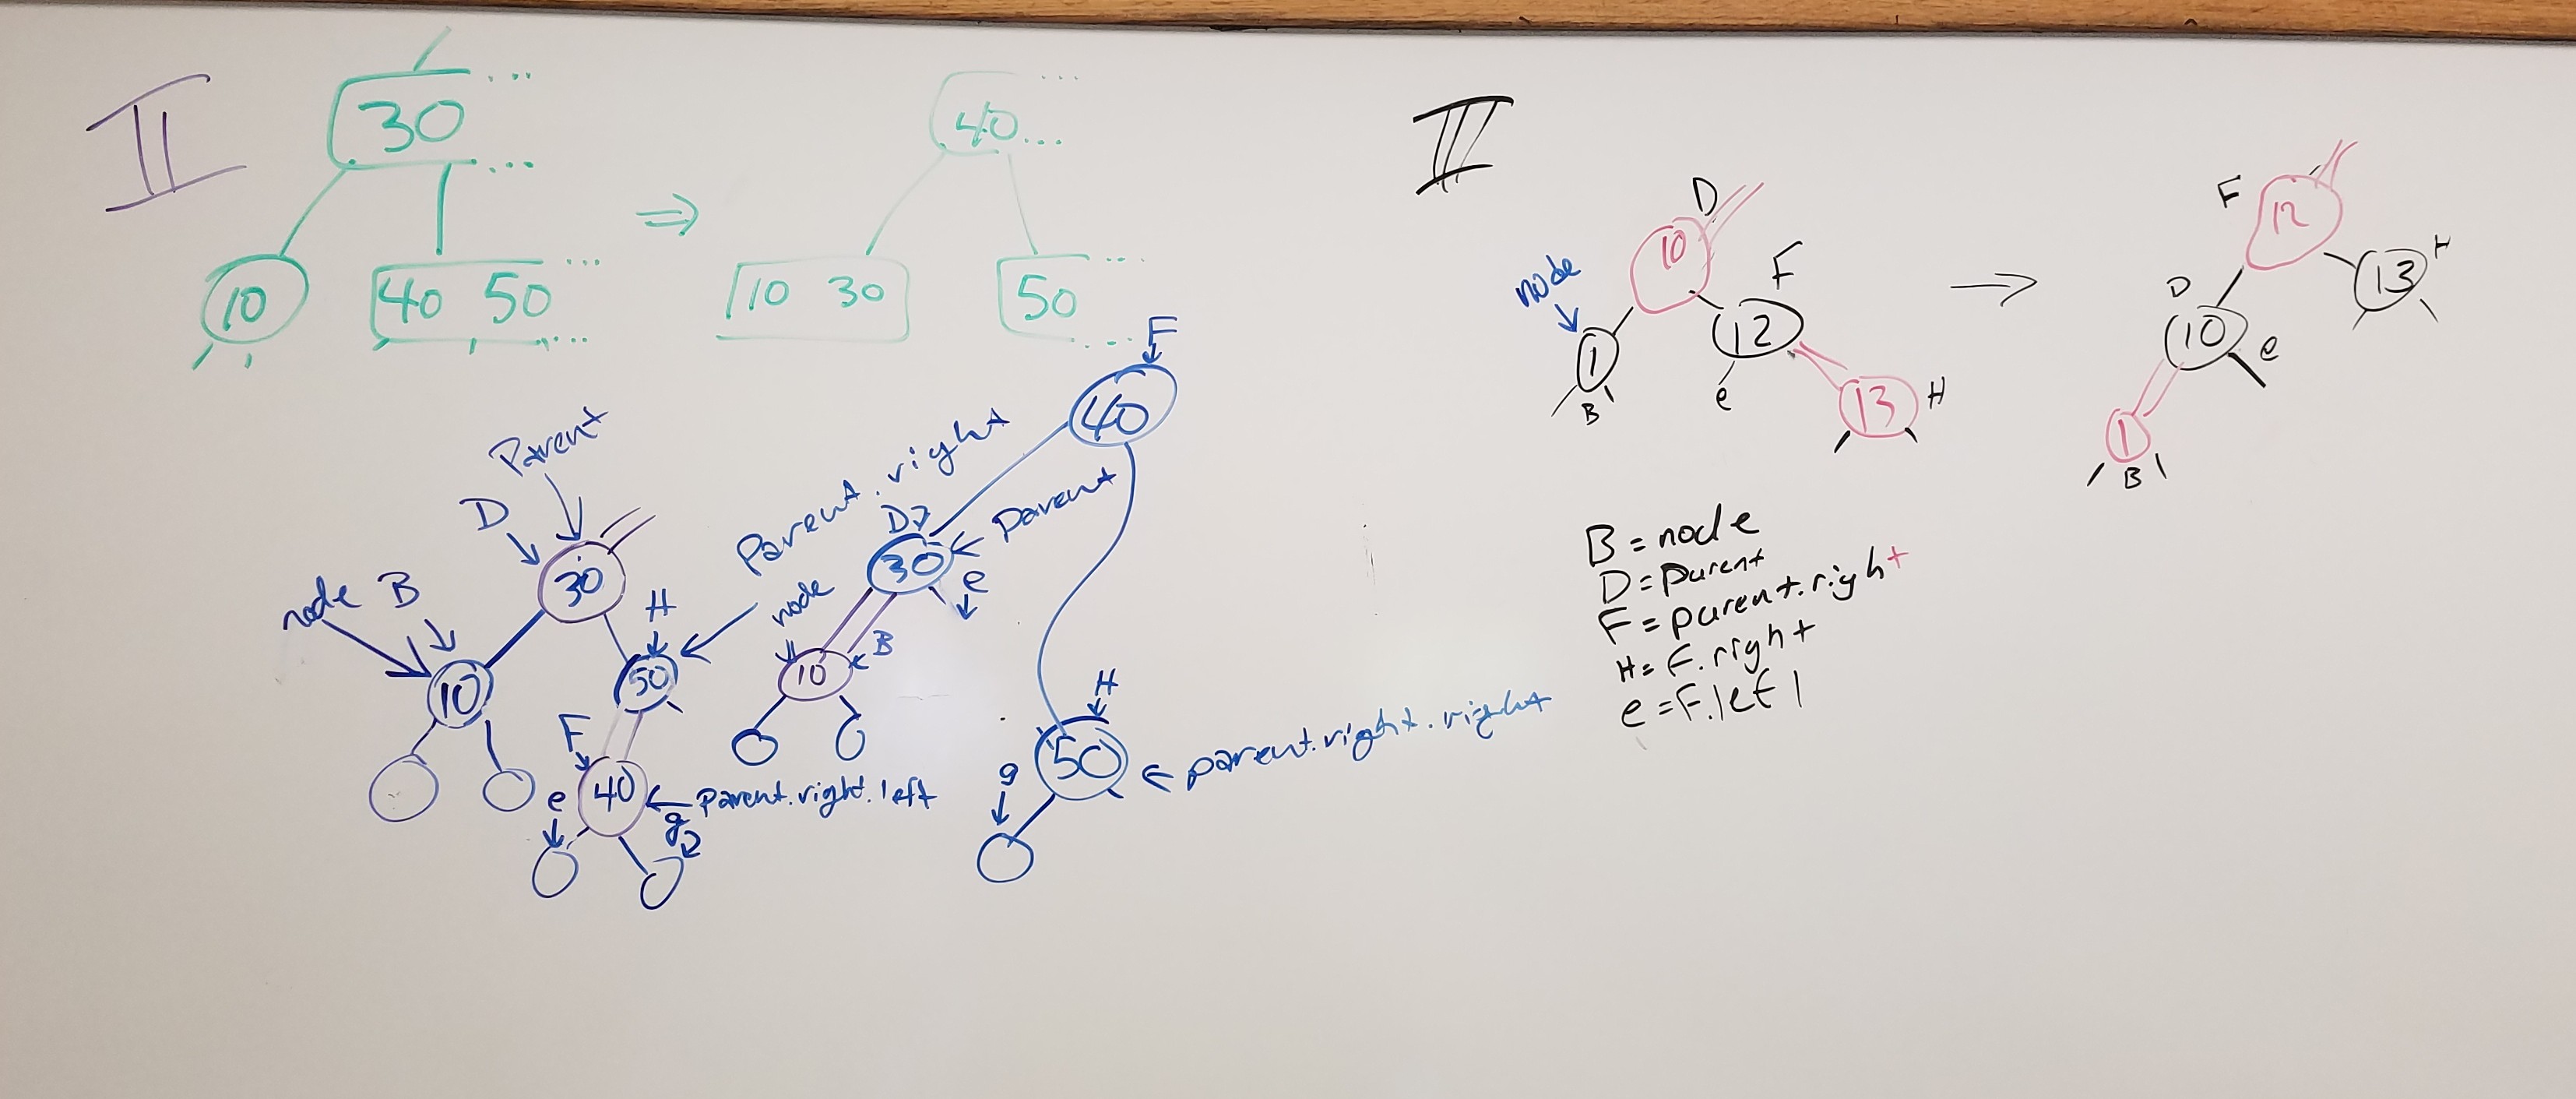 II
30 ...
...
10
40 50 ...
...
⇒
40 ...
...
10 30
50 ...
...
Parent
D
30
node B
10
H
50
Parent.right
F
e
40
parent.right.left
g
F
40
D
30
Parent
e
node
10
B
H
50
parent.right.right
g
III
D
10
F
node
1
B
12
e
13
H
→
F
12
13
H
D
10
e
1
B
B = node
D = parent
F = parent.right
H = F.right
e = F.left